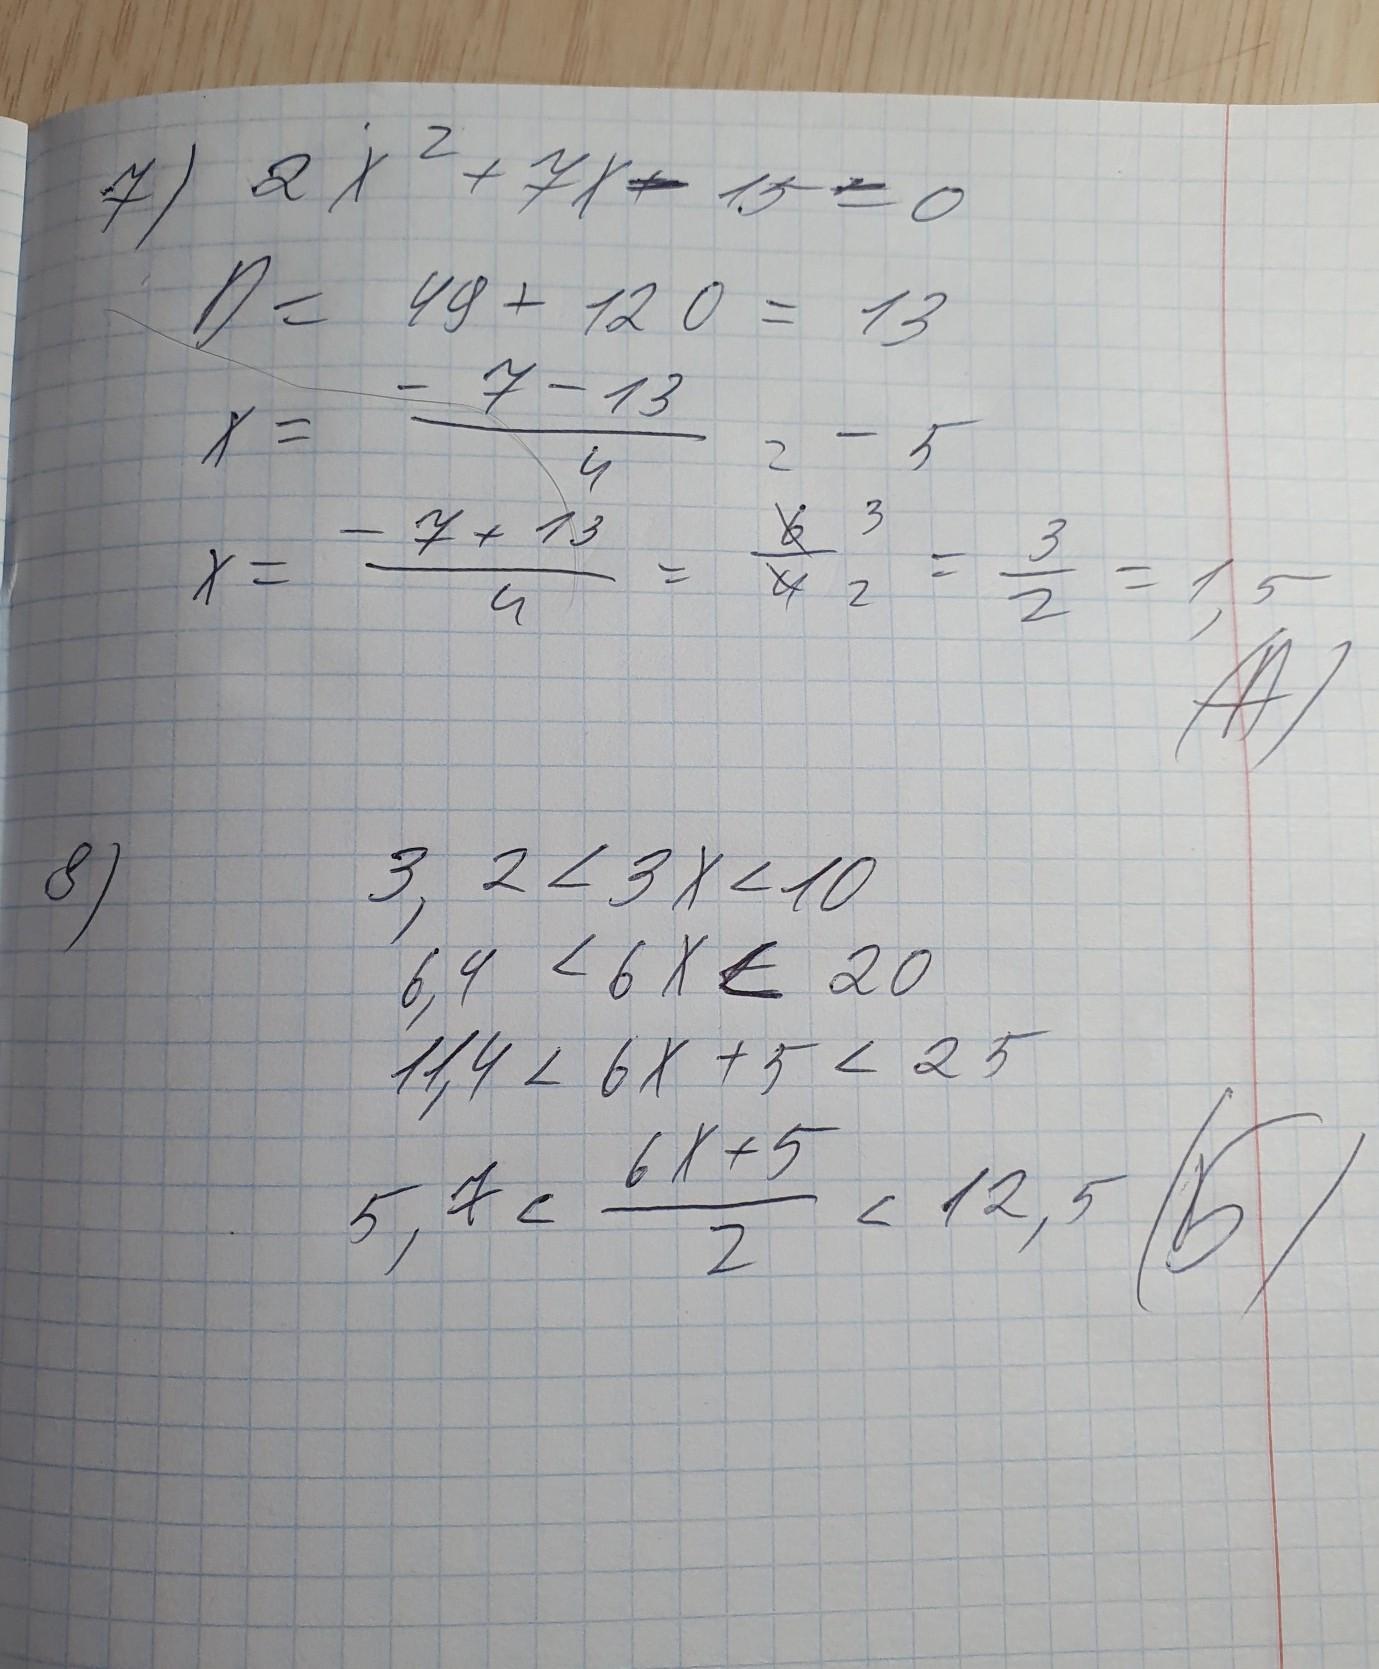 7) 2x² + 7x - 15 = 0
D = 49 + 120 = 13
x = (- 7 - 13)/4 = - 5
x = (- 7 + 13)/4 = 6/4 3/2 = 3/2 = 1,5
(А)
8) 3,2 < 3x < 10
6,4 < 6x < 20
11,4 < 6x + 5 < 25
5,7 < (6x + 5)/2 < 12,5 (Б)